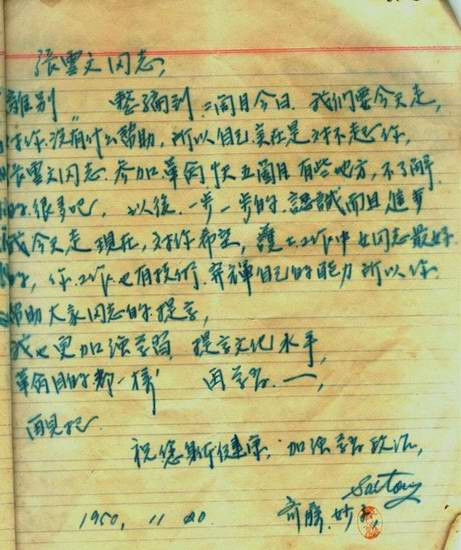 張雲文同志,
離別 整強到 二個月今日. 我们要今天走,
对你沒有什么幫助, 所以自己实在是对不起你,
張雲文同志. 参加革命 快五個月 有些地方, 不了解
的. 很多吧, 以後. 一步一步的. 認識而且進步
我今天走 現在, 对你希望, 護士工作中女同志最好
的, 你. 工作. 也有 自己的能力 所以你
帮助大家同志的提高,
我也更加强学習, 提高文化水平,
革命目的都一樣 再学習. 一,
再見吧
祝您身体健康, 加强学習政治,
Saitou
1950, 11 20 斉勝. 妙子